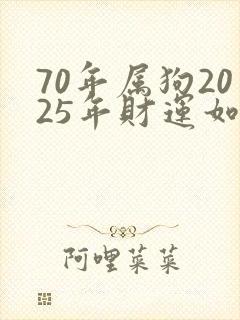 70年属狗20
25年财运如
阿哩菜菜